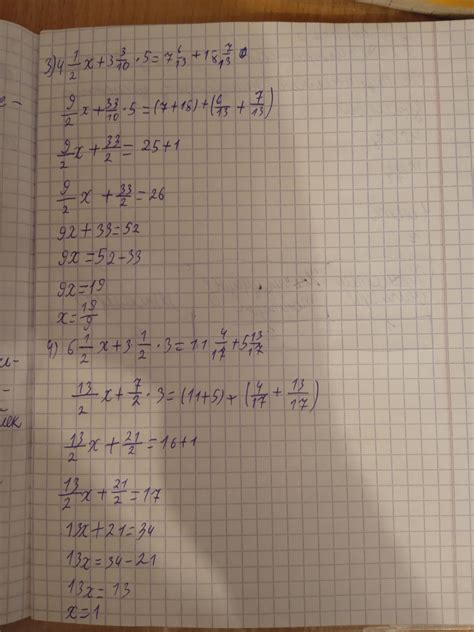 3) 4 1/2 x + 3 3/10 · 5 = 7 6/13 + 18 7/13
9/2 x + 33/10 · 5 = (7+18) + (6/13 + 7/13)
9/2 x + 33/2 = 25+1
9/2 x + 33/2 = 26
9x + 33 = 52
9x = 52-33
9x = 19
x = 19/9
4) 6 1/2 x + 3 1/2 · 3 = 11 4/17 + 5 13/17
13/2 x + 7/2 · 3 = (11+5) + (4/17 + 13/17)
13/2 x + 21/2 = 16+1
13/2 x + 21/2 = 17
13x + 21 = 34
13x = 34-21
13x = 13
x = 1